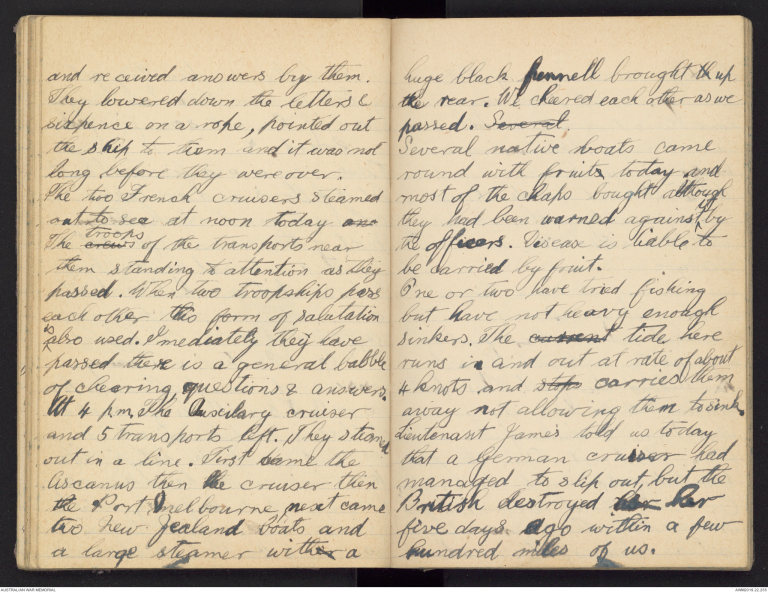 and received answers by them.
They lowered down the letters &
sixpence on a rope, pointed out
the ship to them and it was not
long before they were over.
The two French cruisers steamed
out to sea at noon today and
troops
The crews of the transports near
them standing to attention as they
passed. When two troopships pass
each other this form of salutation
is
also used. Imediately they have
passed there is a general babble
of cheering questions & answers.
At 4 pm, The Auxilary cruiser
and 5 transports left. They steamed
out in a line. First came the
Ascanus then the cruiser then
the Port Melbourne, next came
two New Zealand boats and
a large steamer with a
huge black funnell brought th up
the rear. We cheered each other as we
passed. Several
Several native boats came
round with fruits today and
most of the chaps bought although
they had been warned against by
the officers. Disease is liable to
be carried by fruit.
One or two have tried fishing
but have not heavy enough
sinkers. The current tide here
runs in and out at rate of about
4 knots and stops carries them
away not allowing them to sink.
Lieutenant James told us today
that a German cruiser had
managed to slip out, but the
British destroyed her her
five days ago within a few
hundred miles of us.
AUSTRALIAN WAR MEMORIAL